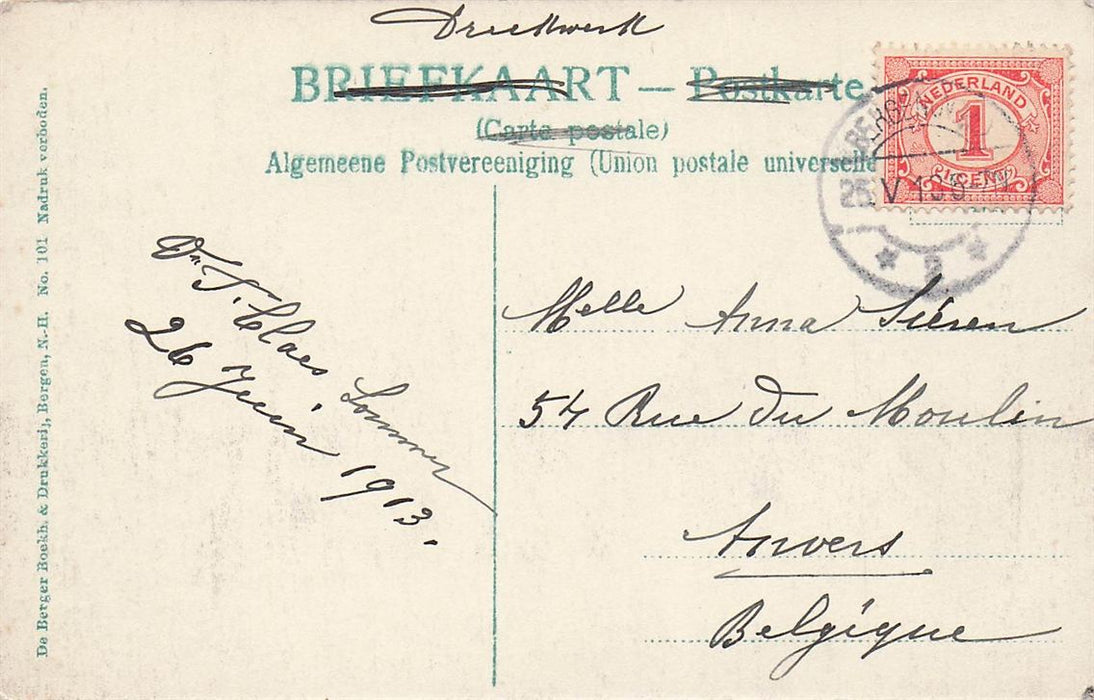 Dreekwerk
BRIEFKAART — Postkarte.
(Carte postale)
Algemeene Postvereeniging (Union postale universelle
NEDERLAND
1
CENT
BERGEN
25 V 13
Dr. T. Claes, Sommer
26 Juin 1913.
Melle Anna Siéren
54 Rue du Moulin
Anvers
Belgique
De Berger Boekh. & Drukkerij, Bergen, N.-H. No. 101 Nadruk verboden.